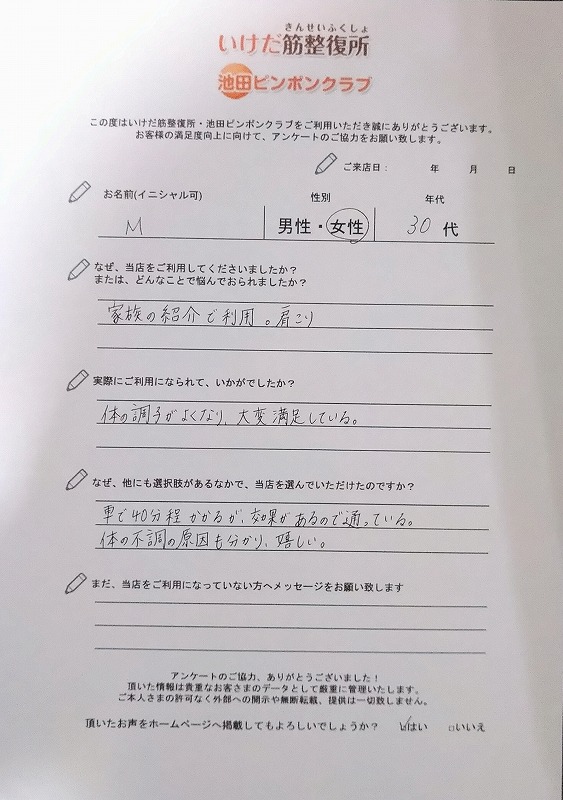 きんせいふくしょ
いけだ筋整復所
池田ピンポンクラブ
この度はいけだ筋整復所・池田ピンポンクラブをご利用いただき誠にありがとうございます。
お客様の満足度向上に向けて、アンケートのご協力をお願い致します。
ご来店日： 年 月 日
お名前(イニシャル可) 性別 年代
M 男性・女性 30 代
なぜ、当店をご利用してくださいましたか？
または、どんなことで悩んでおられましたか？
家族の紹介で利用。肩こり
実際にご利用になられて、いかがでしたか？
体の調子がよくなり、大変満足している。
なぜ、他にも選択肢があるなかで、当店を選んでいただけたのですか？
車で40分程かかるが、効果があるので通っている。
体の不調の原因も分かり、嬉しい。
まだ、当店をご利用になっていない方へメッセージをお願い致します
アンケートのご協力、ありがとうございました！
頂いた情報は貴重なお客さまのデータとして厳重に管理いたします。
ご本人さまの許可なく外部への開示や無断転載、提供は一切致しません。
頂いたお声をホームページへ掲載してもよろしいでしょうか？ ☑はい □いいえ